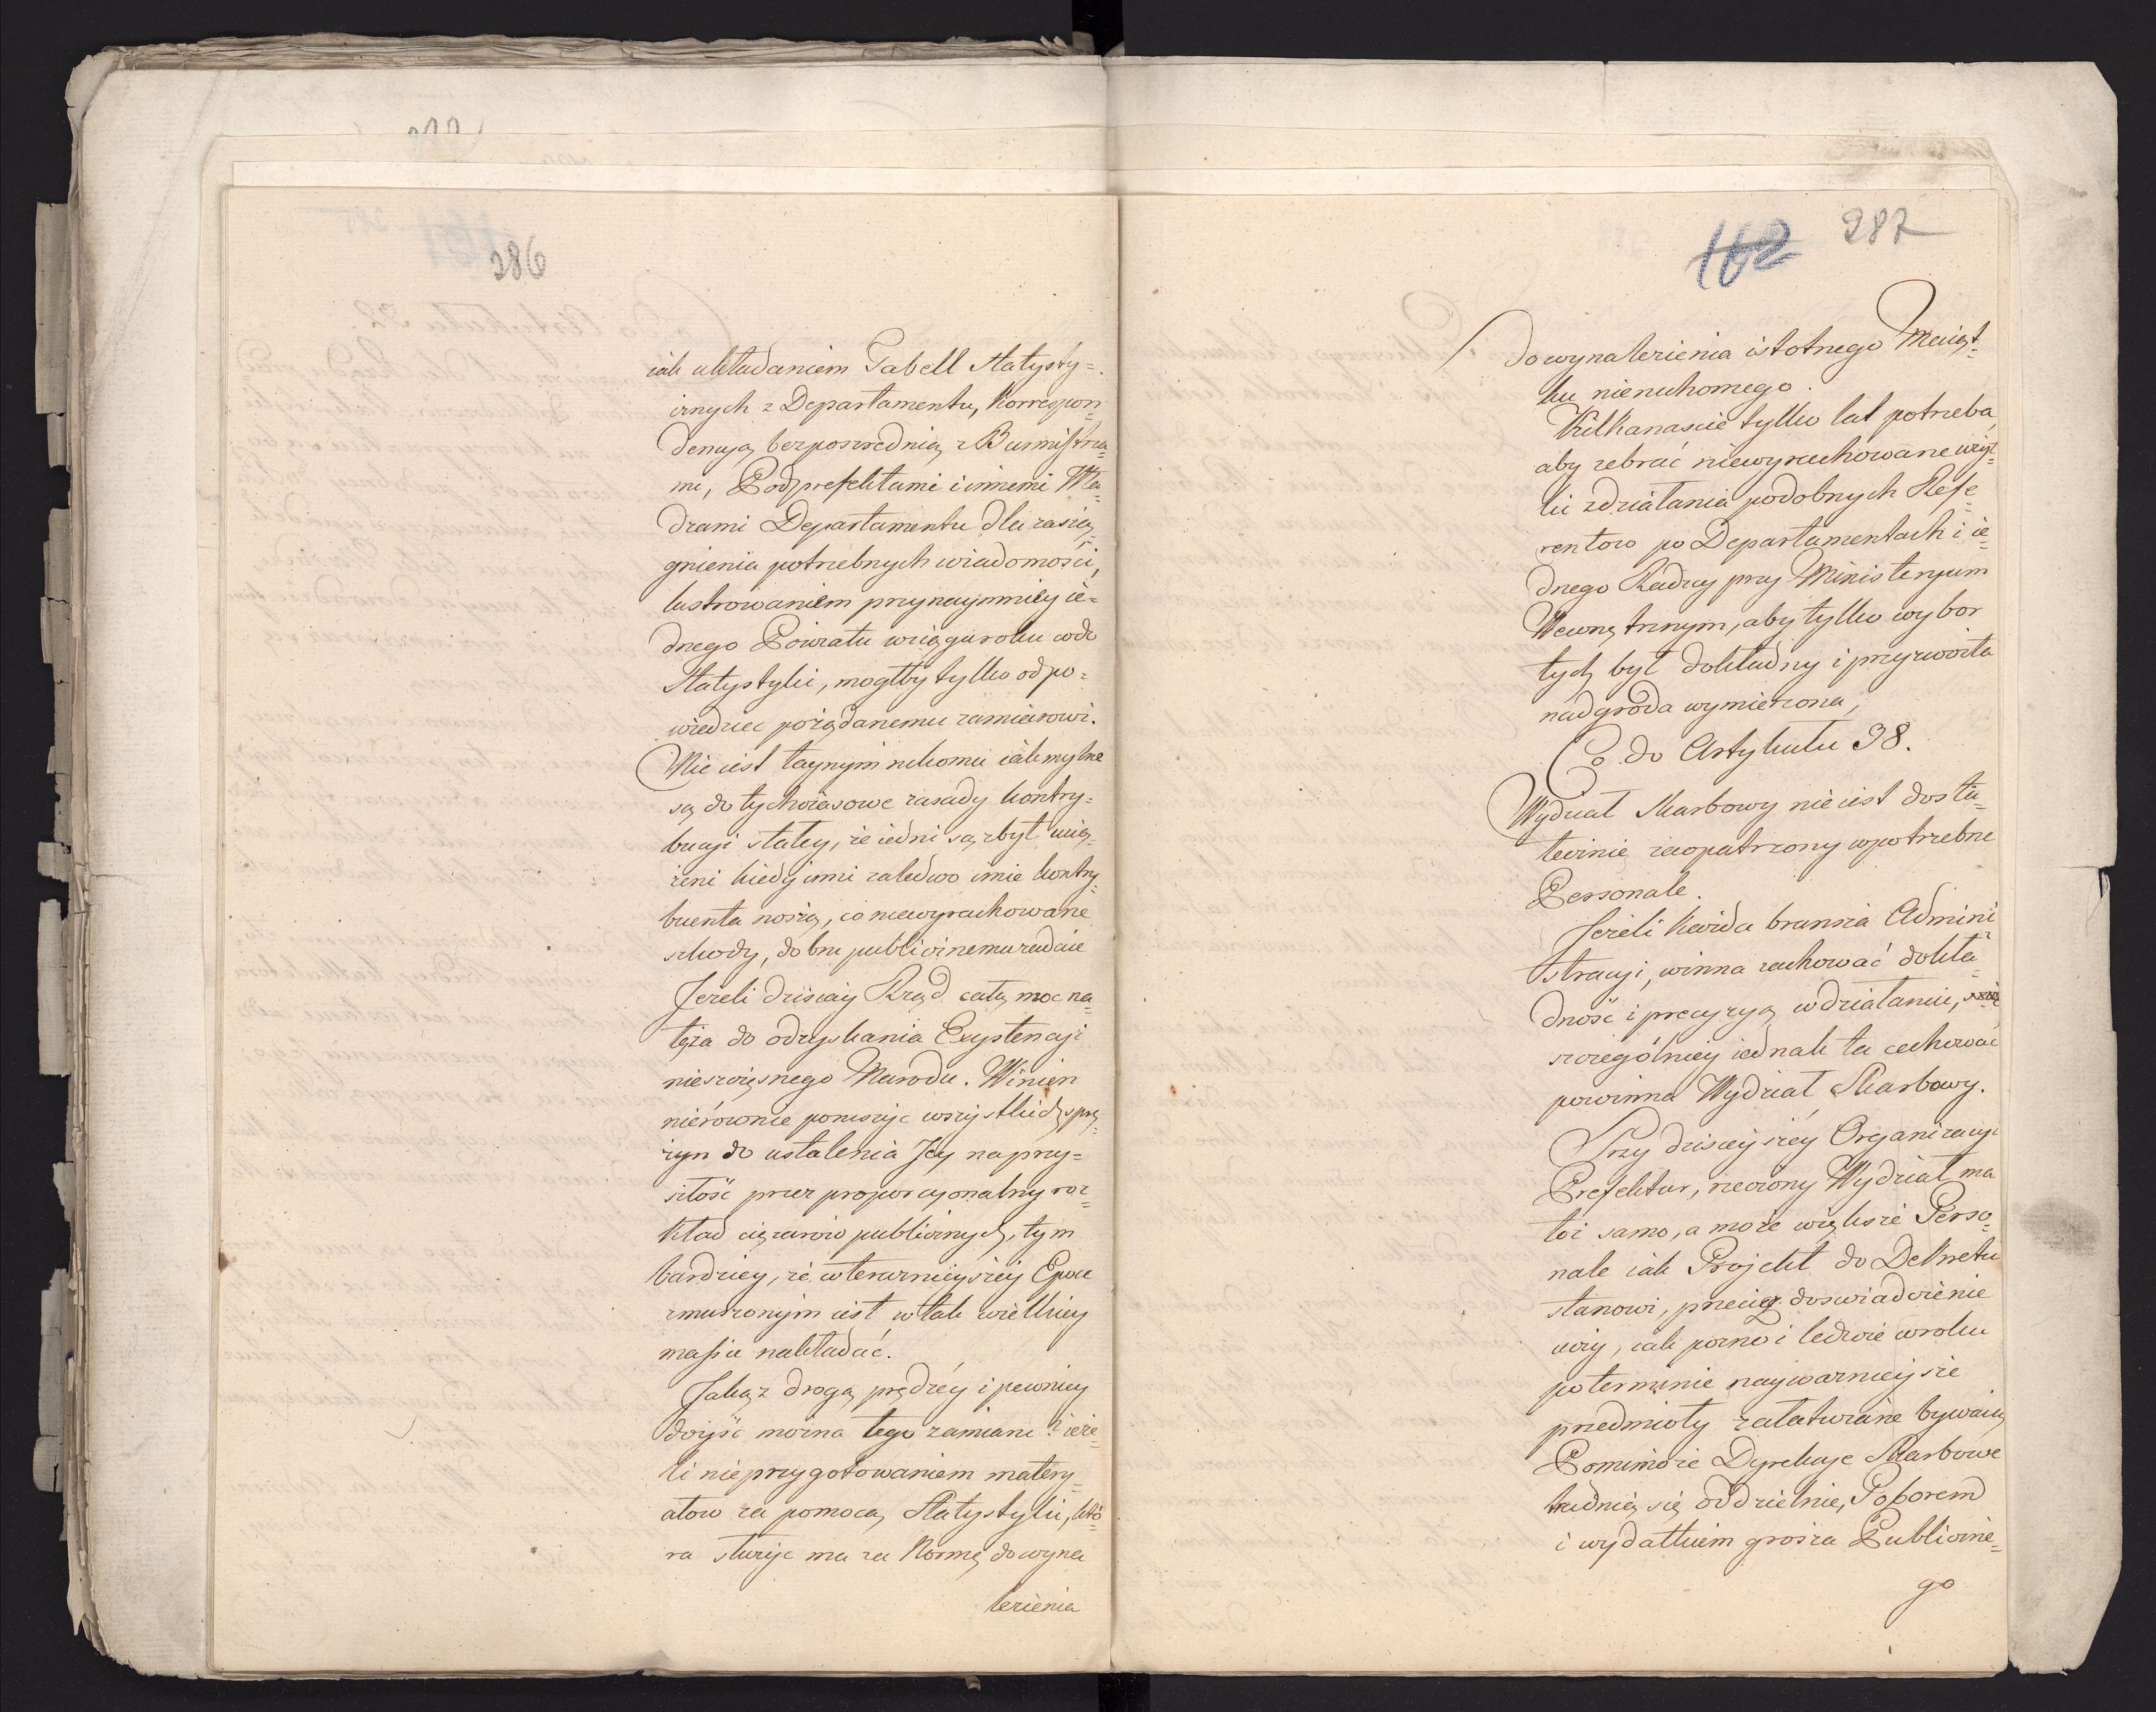 286
iak układaniem Tabell Statysty=
cznych z Departamentu, Korrespon=
dencyą bezpośrednią z Burmistrza=
mi, Podprefektami i innemi Wła=
dzami Departamentu dla zasią=
gnienia potrzebnych wiadomości,
lustrowaniem przynaymniey ie=
dnego Powiatu wciągu roku codo
Statystyki, mogłby tylko odpo=
wiedziec pożądanemu zamiarowi.
Nie iest taynym nikomu iak mylne
są dotychczasowe zasady kontry=
bucyi stałey, że iedni są zbyt ucią=
żeni kiedy inni zaledwo imie kontry=
buenta noszą, co niewyrachowane
szkody, dobru publicznemu zadaie
Jeżeli dzisiay Rząd całą moc na=
tęża do odzyskania Exystencyi
nieszczęsnego Narodu. Winien
nierównie poruszyc wszystkich sprę=
żyn do ustalenia Jey na przy=
szłość przez proporcyonalny roz=
kład cięzarow publicznych, tym
bardziey, że w teraznieyszey Epoce
zmuszonym iest w tak wielkiey
massie nakładać.
Jakąż drogą prędzéy i pewniey
dóyść można tego zamiaru? ieże=
li nieprzygotowaniem matery=
ałow za pomocą Statystyki, któ=
ra słuzyc ma za Normę do wyna
lezienia
162 287
do wynalezienia istotnego Maiąt=
ku nieruchomego.
Kilkanascie tylko lat potrzeba,
aby zebrać niewyrachowane wypł=
ki zdziałania podobnych Refe=
rentow po Departamentach i ie=
dnego Radzcy przy Ministeryum
Wewnętrznym, aby tylko wybor
tych był dokładny i przyzwoita
nadgroda wymierzona,
Co do Artykułu 38.
Wydział Skarbowy nie iest dosta=
tecznie zaopatrzony w potrzebne
Personale.
Jeżeli każda branża Admini=
stracyi, winna zachować dokła=
dność i precyzyą w działaniu,
szczególniey iednak ta cechować
powinna Wydział Skarbowy.
Przy dzisieyszéy Organizacyi
Prefektur, rzeczony Wydział ma
toż samo, a może większe Perso=
nale iak Projekt do Dekretu
stanowi, przecięż doswiadczenie
uczy, iak pozno i ledwie w roku
po terminie naywaznieysze
przedmioty załatwiane bywaią
Pomimo że Dyrekcye Skarbowe
trudnią się oddzielnie, Poborem
i wydatkiem grosza Publiczne=
go